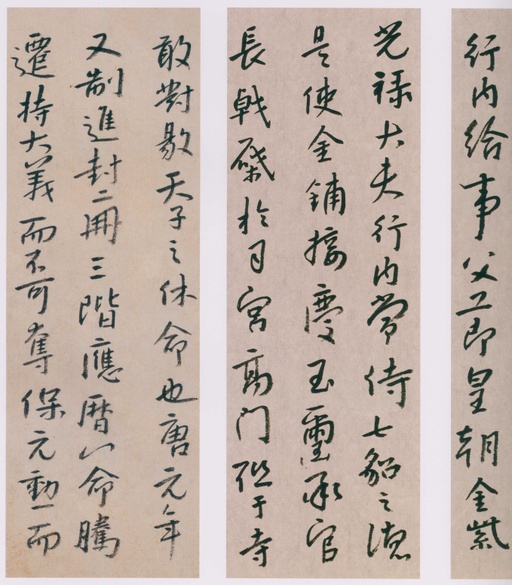 行內給事父工部皇朝金紫
光祿大夫行內常侍七貂之德
是使金鋪接慶玉璽承官
長戟磔於司宮高門臨于寺
敢對敭天子之休命也唐元年
又制進封二冊三階應曆以命騰
遷持大義而不可奪保元勳而